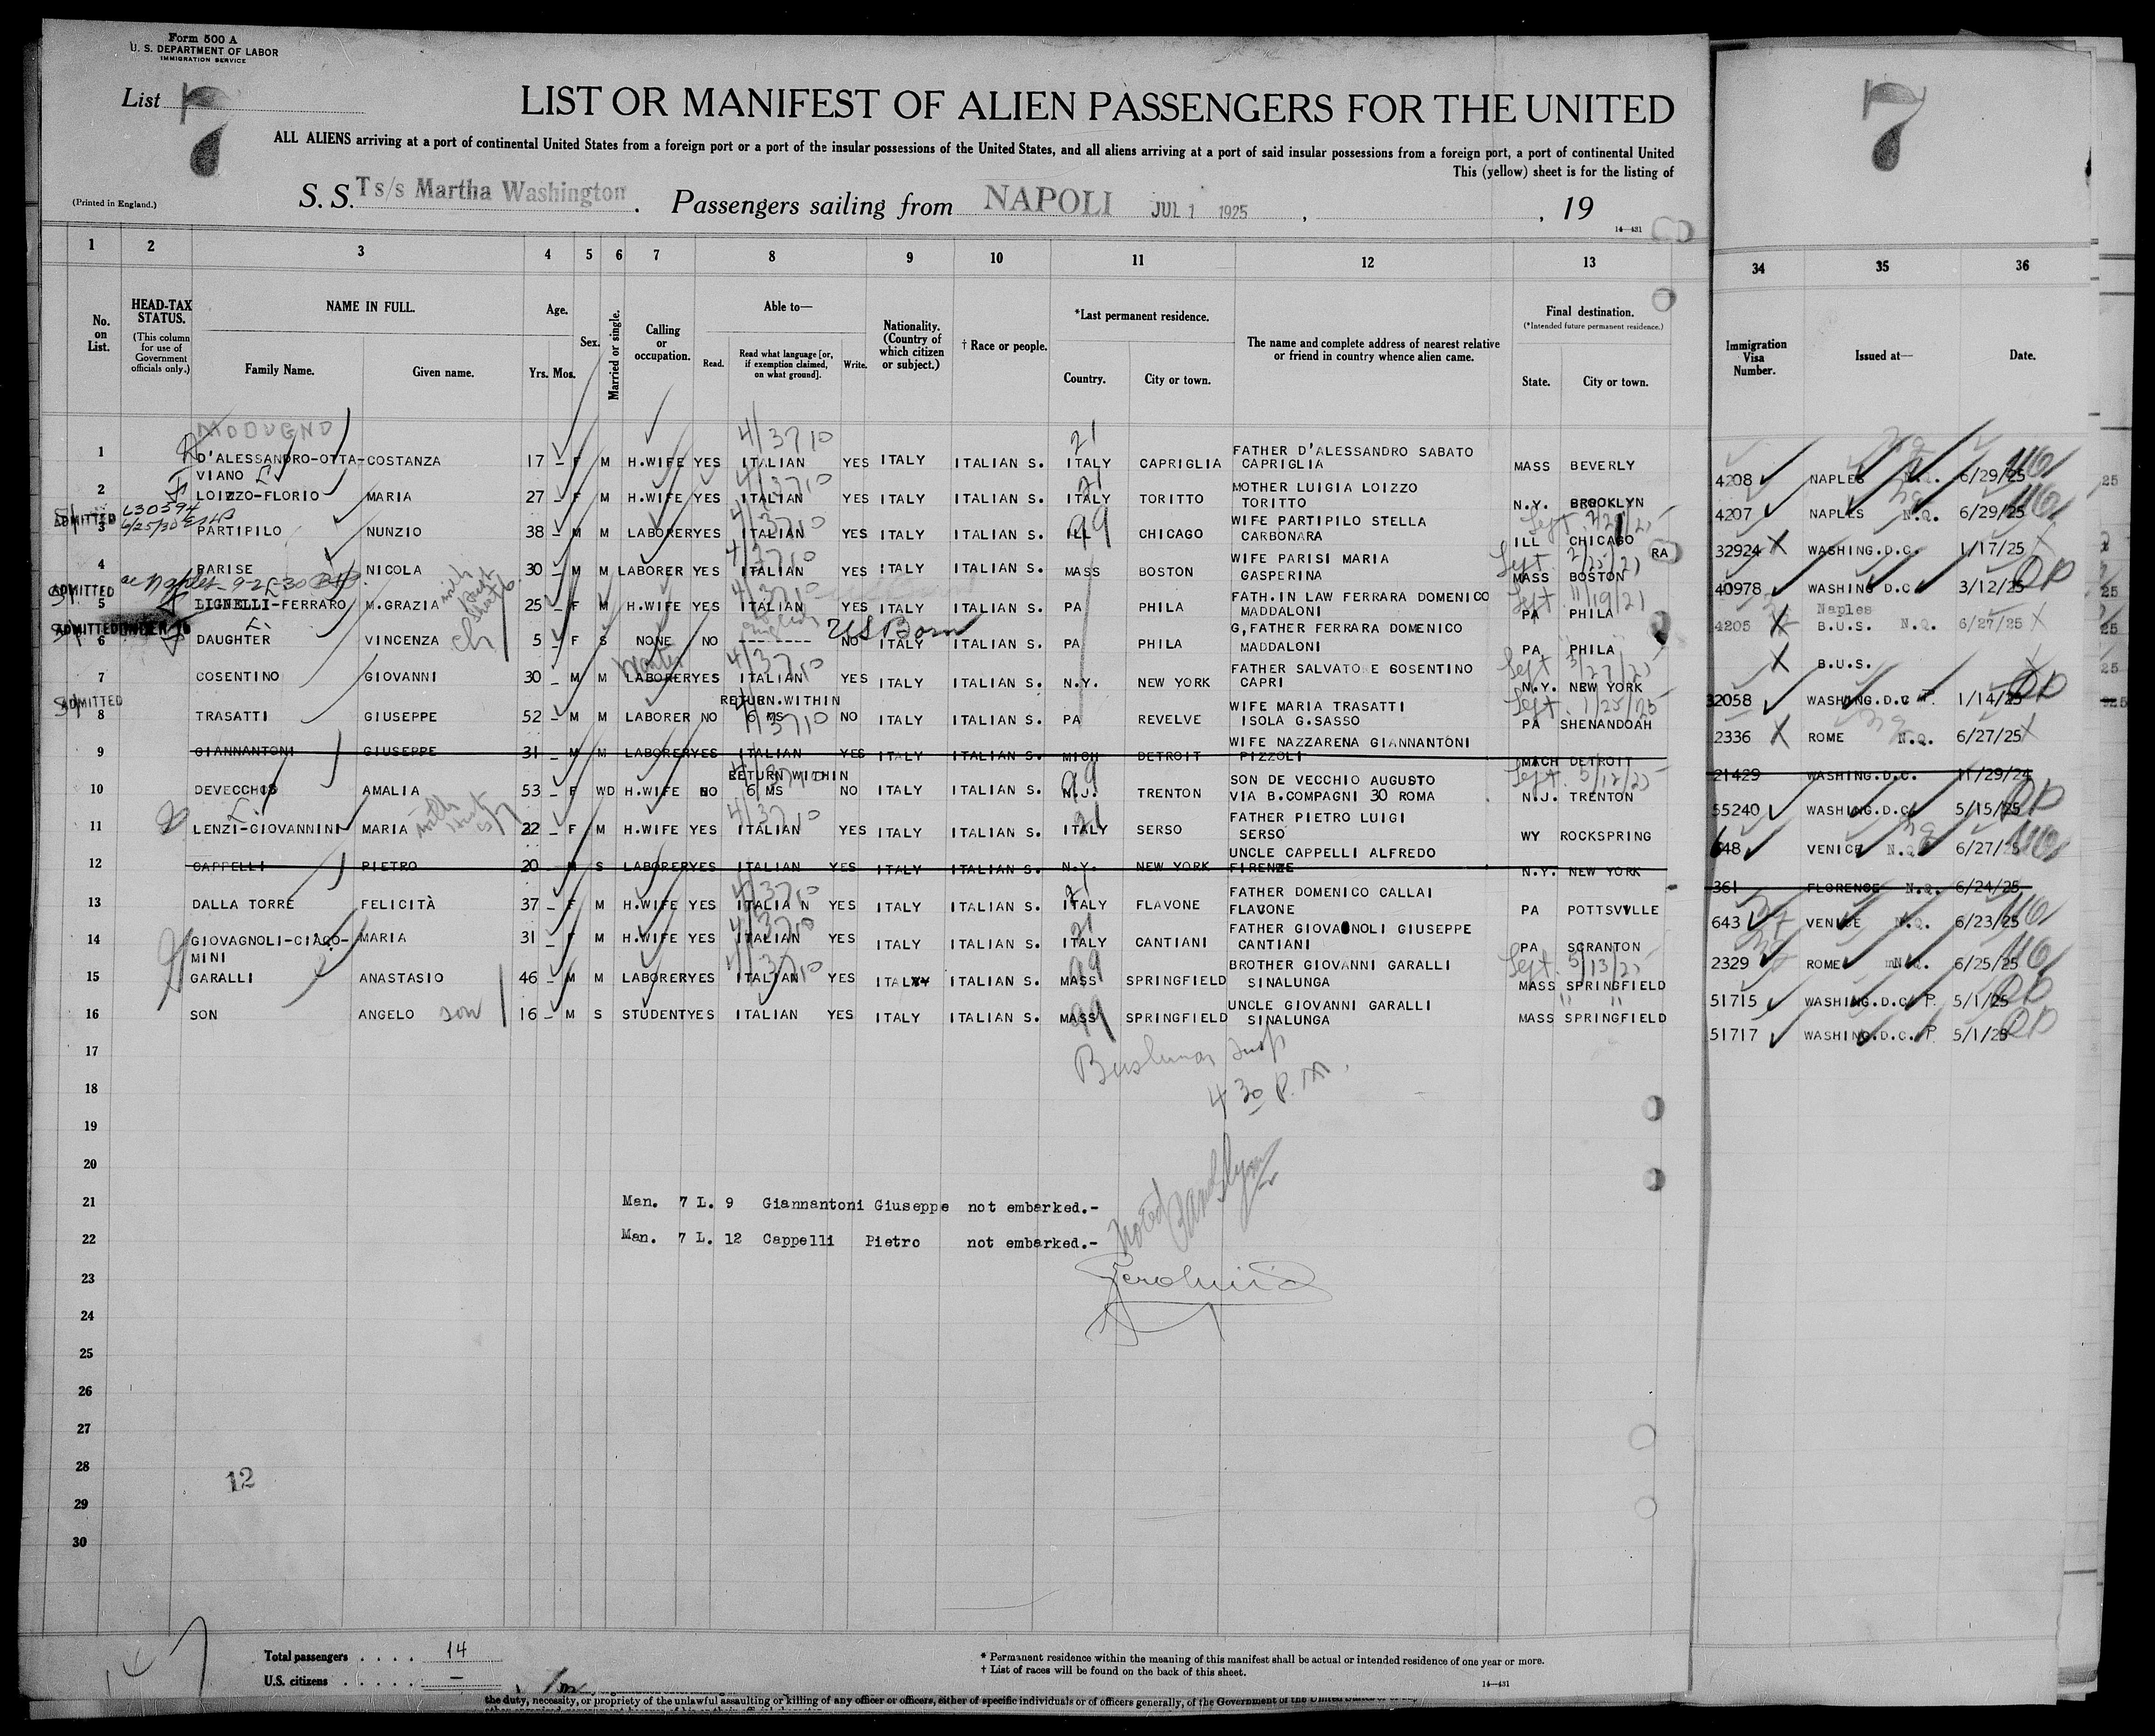 Form 500 A
U. S. DEPARTMENT OF LABOR
IMMIGRATION SERVICE
List 7
7
LIST OR MANIFEST OF ALIEN PASSENGERS FOR THE UNITED
ALL ALIENS arriving at a port of continental United States from a foreign port or a port of the insular possessions of the United States, and all aliens arriving at a port of said insular possessions from a foreign port, a port of continental United
This (yellow) sheet is for the listing of
(Printed in England.)
S. S. Ts/s Martha Washington . Passengers sailing from NAPOLI JUL 1 1925 , , 19
14—431
1 2 3 4 5 6 7 8 9 10 11 12 13 34 35 36
No. on List.
HEAD-TAX STATUS.
(This column for use of Government officials only.)
NAME IN FULL.
Family Name. Given name.
Age.
Yrs. Mos.
Sex.
Married or single.
Calling or occupation.
Able to—
Read. Read what language [or, if exemption claimed, on what ground]. Write.
Nationality. (Country of which citizen or subject.)
† Race or people.
*Last permanent residence.
Country. City or town.
The name and complete address of nearest relative or friend in country whence alien came.
Final destination.
(*Intended future permanent residence.)
State. City or town.
Immigration Visa Number.
Issued at—
Date.
MODUGNO
1 D'ALESSANDRO-OTTA- COSTANZA 17 – F M H.WIFE YES ITALIAN YES ITALY ITALIAN S. ITALY CAPRIGLIA FATHER D'ALESSANDRO SABATO MASS BEVERLY 4208 NAPLES N.Q. 6/29/25
VIANO CAPRIGLIA
2 LOIZZO-FLORIO MARIA 27 – F M H.WIFE YES ITALIAN YES ITALY ITALIAN S. ITALY TORITTO MOTHER LUIGIA LOIZZO N.Y. BROOKLYN 4207 NAPLES N.Q. 6/29/25
TORITTO
ADMITTED
3 PARTIPILO NUNZIO 38 – M M LABORER YES ITALIAN YES ITALY ITALIAN S. ILL CHICAGO WIFE PARTIPILO STELLA ILL CHICAGO 32924 WASHING.D.C. 1/17/25
CARBONARA
4 PARISE NICOLA 30 – M M LABORER YES ITALIAN YES ITALY ITALIAN S. MASS BOSTON WIFE PARISI MARIA MASS BOSTON 40978 WASHING D.C 3/12/25
GASPERINA
RA
ADMITTED
5 LIGNELLI-FERRARO M.GRAZIA 25 – F M H.WIFE YES ITALIAN YES ITALY ITALIAN S. PA PHILA FATH.IN LAW FERRARA DOMENICO PA PHILA 4205 B.U.S. N.Q. 6/27/25
MADDALONI
Naples
ADMITTED UNDER 16
US Born
6 DAUGHTER VINCENZA ch 5 – F S NONE NO --- ---- NO ITALY ITALIAN S. PA PHILA G,FATHER FERRARA DOMENICO PA PHILA B.U.S.
MADDALONI
7 COSENTINO GIOVANNI 30 – M M LABORER YES ITALIAN YES ITALY ITALIAN S. N.Y. NEW YORK FATHER SALVATORE GOSENTINO N.Y. NEW YORK 32058 WASHING.D.C P. 1/14/25
CAPRI
ADMITTED
RETURN.WITHIN
8 TRASATTI GIUSEPPE 52 – M M LABORER NO 6 MS NO ITALY ITALIAN S. PA REVELVE WIFE MARIA TRASATTI PA SHENANDOAH 2336 ROME N.Q. 6/27/25
ISOLA G.SASSO
9 GIANNANTONI GIUSEPPE 31 – M M LABORER YES ITALIAN YES ITALY ITALIAN S. MICH DETROIT WIFE NAZZARENA GIANNANTONI MACH DETROIT 21429 WASHING.D.C. 11/29/24
PIZZOLI
RETURN WITHIN
10 DEVECCHIS AMALIA 53 – F WD H.WIFE NO 6 MS NO ITALY ITALIAN S. N.J. TRENTON SON DE VECCHIO AUGUSTO N.J. TRENTON 55240 WASHING.D.C 5/15/25
VIA B.COMPAGNI 30 ROMA
11 LENZI-GIOVANNINI MARIA 22 – F M H.WIFE YES ITALIAN YES ITALY ITALIAN S. ITALY SERSO FATHER PIETRO LUIGI WY ROCKSPRING 648 VENICE N.Q. 6/27/25
SERSO
12 CAPPELLI PIETRO 20 – M S LABORER YES ITALIAN YES ITALY ITALIAN S. N.Y. NEW YORK UNCLE CAPPELLI ALFREDO N.Y. NEW YORK 361 FLORENCE N.Q. 6/24/25
FIRENZE
13 DALLA TORRE FELICITÀ 37 – F M H.WIFE YES ITALIA N YES ITALY ITALIAN S. ITALY FLAVONE FATHER DOMENICO CALLAI PA POTTSVVLLE 643 VENICE N.Q. 6/23/25
FLAVONE
14 GIOVAGNOLI-CIACO- MARIA 31 – F M H.WIFE YES ITALIAN YES ITALY ITALIAN S. ITALY CANTIANI FATHER GIOVAGNOLI GIUSEPPE PA SCRANTON 2329 ROME N.Q. 6/25/25
MINI CANTIANI
15 GARALLI ANASTASIO 46 – M M LABORER YES ITALIAN YES ITALY ITALIAN S. MASS SPRINGFIELD BROTHER GIOVANNI GARALLI MASS SPRINGFIELD 51715 WASHING.D.C. P. 5/1/25
SINALUNGA
16 SON ANGELO son 16 – M S STUDENT YES ITALIAN YES ITALY ITALIAN S. MASS SPRINGFIELD UNCLE GIOVANNI GARALLI MASS SPRINGFIELD 51717 WASHING.D.C. P. 5/1/25
SINALUNGA
17
18
4 30 P.M.
19
20
21 Man. 7 L. 9 Giannantoni Giuseppe not embarked.-
22 Man. 7 L. 12 Cappelli Pietro not embarked.-
23
24
25
26
27
28
12
29
30
Total passengers . . . . 14
U.S. citizens . . . . . –
* Permanent residence within the meaning of this manifest shall be actual or intended residence of one year or more.
† List of races will be found on the back of this sheet.
14—431
the duty, necessity, or propriety of the unlawful assaulting or killing of any officer or officers, either of specific individuals or of officers generally, of the Government of the United States